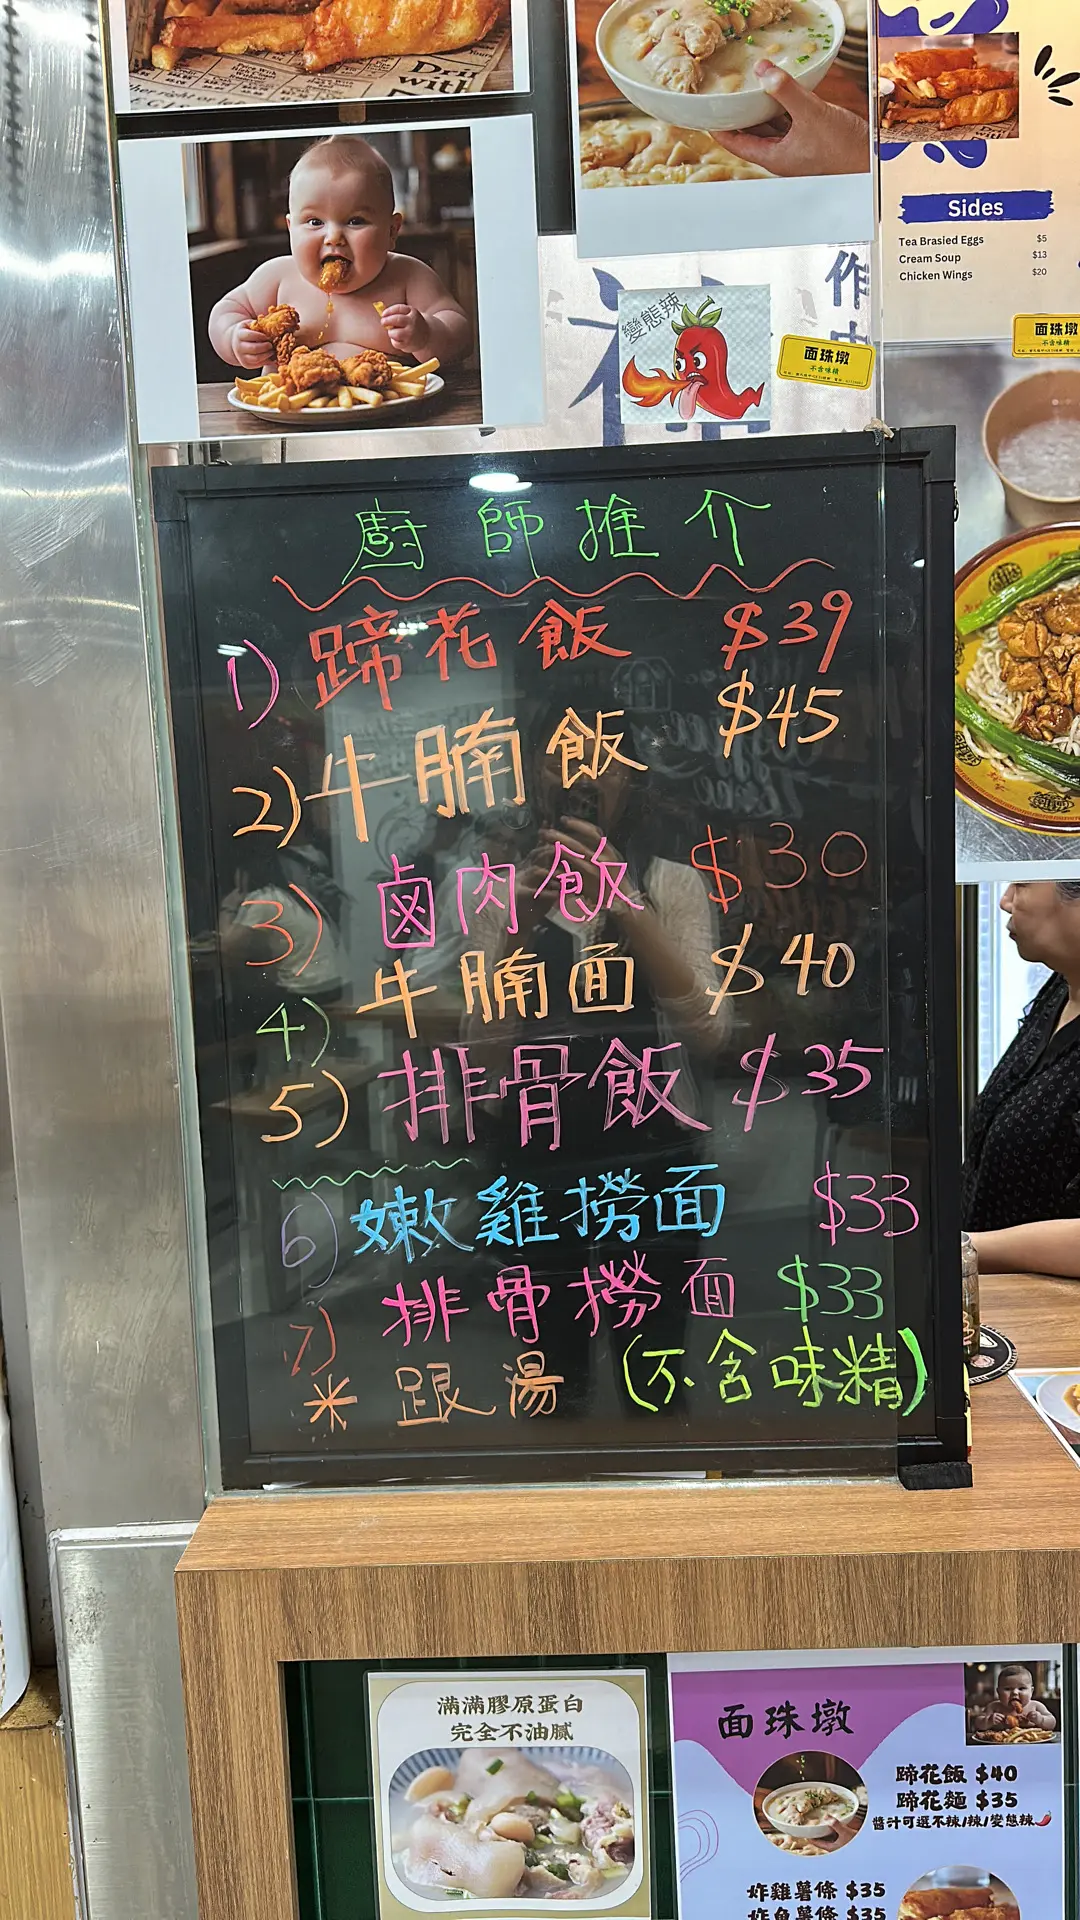 Sides
Tea Brasied Eggs $5
Cream Soup $13
Chicken Wings $20
變態辣
面珠墩
不含味精
面珠墩
不含味精
廚師推介
1) 蹄花飯 $39
2) 牛腩飯 $45
3) 鹵肉飯 $30
4) 牛腩面 $40
5) 排骨飯 $35
6) 嫩雞撈面 $33
7) 排骨撈面 $33
* 跟湯 (不含味精)
滿滿膠原蛋白
完全不油膩
面珠墩
蹄花飯 $40
蹄花麵 $35
醬汁可選不辣/辣/變態辣
炸雞薯條 $35
炸魚薯條 $35